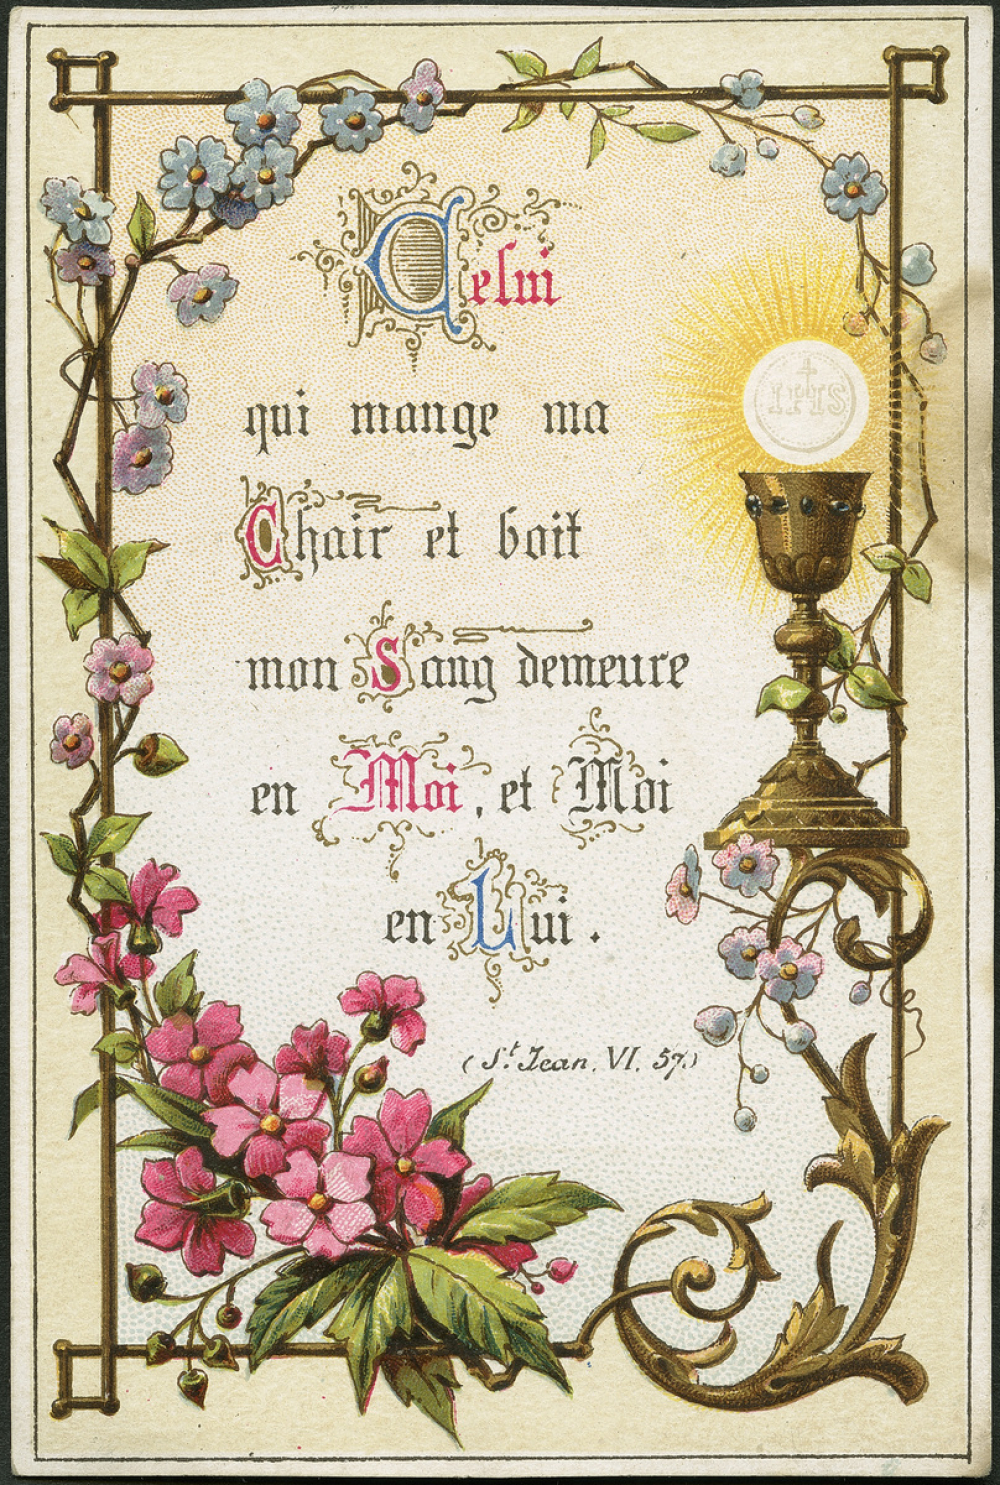 Celui
qui mange ma
Chair et boit
mon Sang demeure
en Moi, et Moi
en Lui.
(St Jean. VI. 57.)
IHS